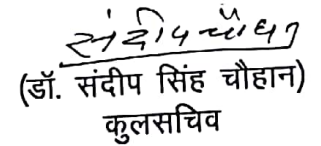 संदीप चौहान
(डॉ. संदीप सिंह चौहान)
कुलसचिव